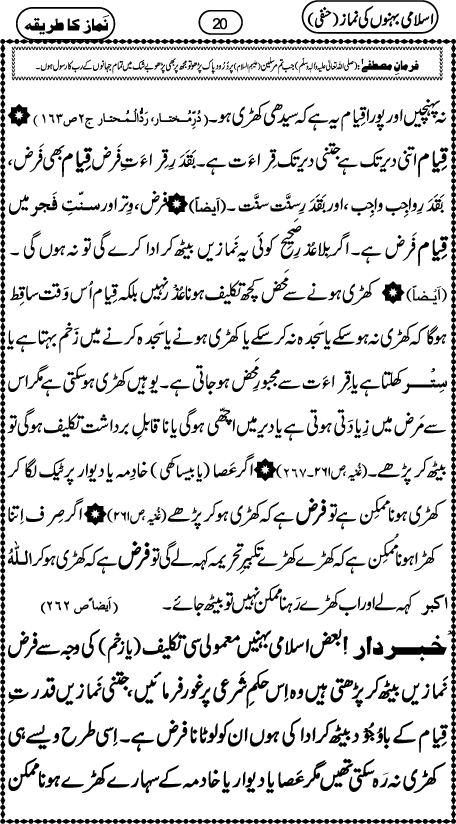 اسلامی بہنوں کی نماز (حنفی)
20
نَماز کا طریقہ
فرمانِ مصطفےٰ: (صلی اللہ تعالیٰ علیہ والہٖ وسلّم) جب تم مرسلین (علیہم السلام) پر دُرُود پاک پڑھو تو مجھ پر بھی پڑھو بے شک میں تمام جہانوں کے رب کا رسول ہوں۔
نہ پہنچیں اور پورا قِیام یہ ہے کہ سیدھی کھڑی ہو۔ (دُرِّمُختار، رَدُّالمُحتار ج۲ ص۱۶۳)
قِیام اتنی دیر تک ہے جتنی دیر تک قِراءَت ہے۔ بقَدَرِ قِراءَتِ فَرض قِیام بھی فَرض،
بَقَدَرِ واجِب واجِب، اور بقَدَرِ سنَّت سنَّت۔ (اَیضاً) فَرض، وِتر اور سنّتِ فَجر میں
قِیام فَرض ہے۔ اگر بِلا عُذرِ صَحیح کوئی یہ نَمازیں بیٹھ کر ادا کرے گی تو نہ ہوں گی۔
(اَیضاً) کھڑی ہونے سے مَحض کچھ تکلیف ہونا عُذر نہیں بلکہ قِیام اُس وَقت ساقِط
ہوگا کہ کھڑی نہ ہو سکے یا سَجدہ نہ کر سکے یا کھڑی ہونے یا سَجدہ کرنے میں زَخم بہتا ہے یا
سِتْر کھلتا ہے یا قِراءَت سے مجبورِ مَحض ہو جاتی ہے۔ یوہیں کھڑی ہو سکتی ہے مگر اس
سے مَرض میں زِیادَتی ہوتی ہے یا دیر میں اچّھی ہوگی یا ناقابلِ برداشت تکلیف ہوگی تو
بیٹھ کر پڑھے۔ (غُنیہ ص۲۶۱۔۲۶۷) اگر عَصا (یا بیساکھی) خادِمہ یا دیوار پر ٹیک لگا کر
کھڑی ہونا ممکِن ہے تو فَرض ہے کہ کھڑی ہو کر پڑھے (غُنیہ ص۲۶۱) اگر صِرف اِتنا
کھڑا ہونا مُمکِن ہے کہ کھڑے کھڑے تکبیرِ تحریمہ کہہ لے گی تو فَرض ہے کہ کھڑی ہو کر اللہُ
اکبر کہہ لے اور اب کھڑے رَہنا ممکن نہیں تو بیٹھ جائے۔ (اَیضاً ص ۲۶۲)
خبردار! بعض اسلامی بہنیں معمولی سی تکلیف (یا زخم) کی وجہ سے فرض
نَمازیں بیٹھ کر پڑھتی ہیں وہ اِس حکمِ شَرعی پر غور فرمائیں، جتنی نَمازیں قدرتِ
قِیام کے باوُجُود بیٹھ کر ادا کی ہوں ان کو لوٹانا فرض ہے۔ اِسی طرح ویسے ہی
کھڑی نہ رَہ سکتی تھیں مگر عَصا یا دیوار یا خادمہ کے سہارے کھڑے ہونا ممکن